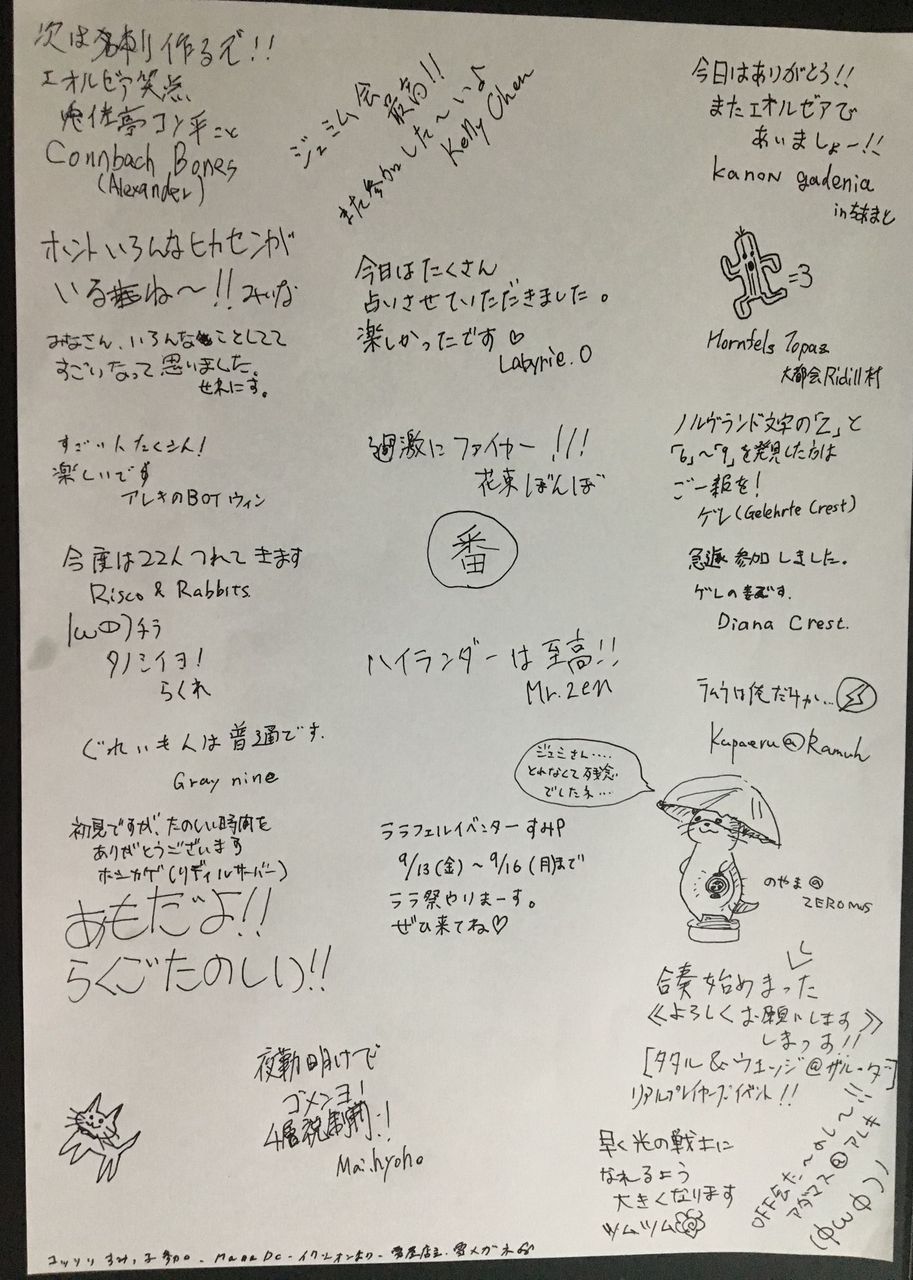 次は名刺作るで!!
エオルゼア笑点
Connbach Bones
(Alexander)
ホントいろんなヒカセンが
いるね〜!! みりな
みなさん、いろんなことしてて
すごいなって思いました。
せれにす。
すごい人たくさん!
楽しいです
アレキのBOTウィン
今度は22人つれてきます
Risco & Rabbits
|ω・)チラ
タノシイヨ!
らくれ
ぐれいもんは普通です.
Gray nine
初見ですが、たのしい時間を
ありがとうございます
ホシカゲ(リディルサーバー)
あもだよ!!
らくごたのしい!!
ジュミ会
最高!!
また参加した〜いよ
Kelly Chen
今日はたくさん
占いさせていただきました。
楽しかったです♡
Labyrie.O
過激にファイヤー!!!
花束ぼんぼ
番
ハイランダーは至高!!
Mr.Zen
ジュミさん....
とれなくて残念
でしたネ...
ララフェルイベンターすみP
9/13(金)〜9/16(月)まで
ララ祭やりまーす。
ぜひ来てね♡
夜勤明けで
ゴメンヨ!
Mai.hyoho
今日はありがとう!!
またエオルゼアで
あいましょー!!
Kanon gadenia
=3
Hornfels Topaz
大都会Ridill村
ノルヴランド文字の「Z」と
「6」〜「9」を発見した方は
ご一報を!
ゲレ(Gelehrte Crest)
急遽参加しました。
ゲレの妻です.
Diana Crest.
ラムウは俺だけか...
Kupaeru@Ramuh
のやま@
ZEROMUS
合奏始めまった
≪よろしくお願いします≫
しまっす!!
[タタル&ウェッジ@ザルーダ]
リアルプレイヤーズイベント!!
早く光の戦士に
なれるよう
大きくなります
ツムツム
OFF会た〜のし〜!!
アダマス@アレキ
(ΦωΦ)ノ